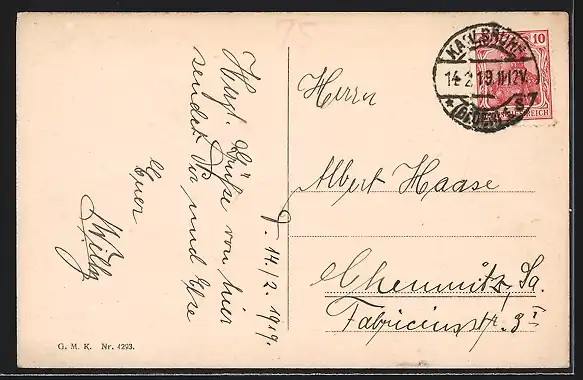 75
Herzl. Grüße von hier
sendet Dir und Ehse
Euer
Willy
d. 14./2. 1919.
Herrn
Albert Haase
Chemnitz, Sa.
Fabriciusstr. 3 I
10
14 2 19 11-12V.
G. M. K. Nr. 4293.